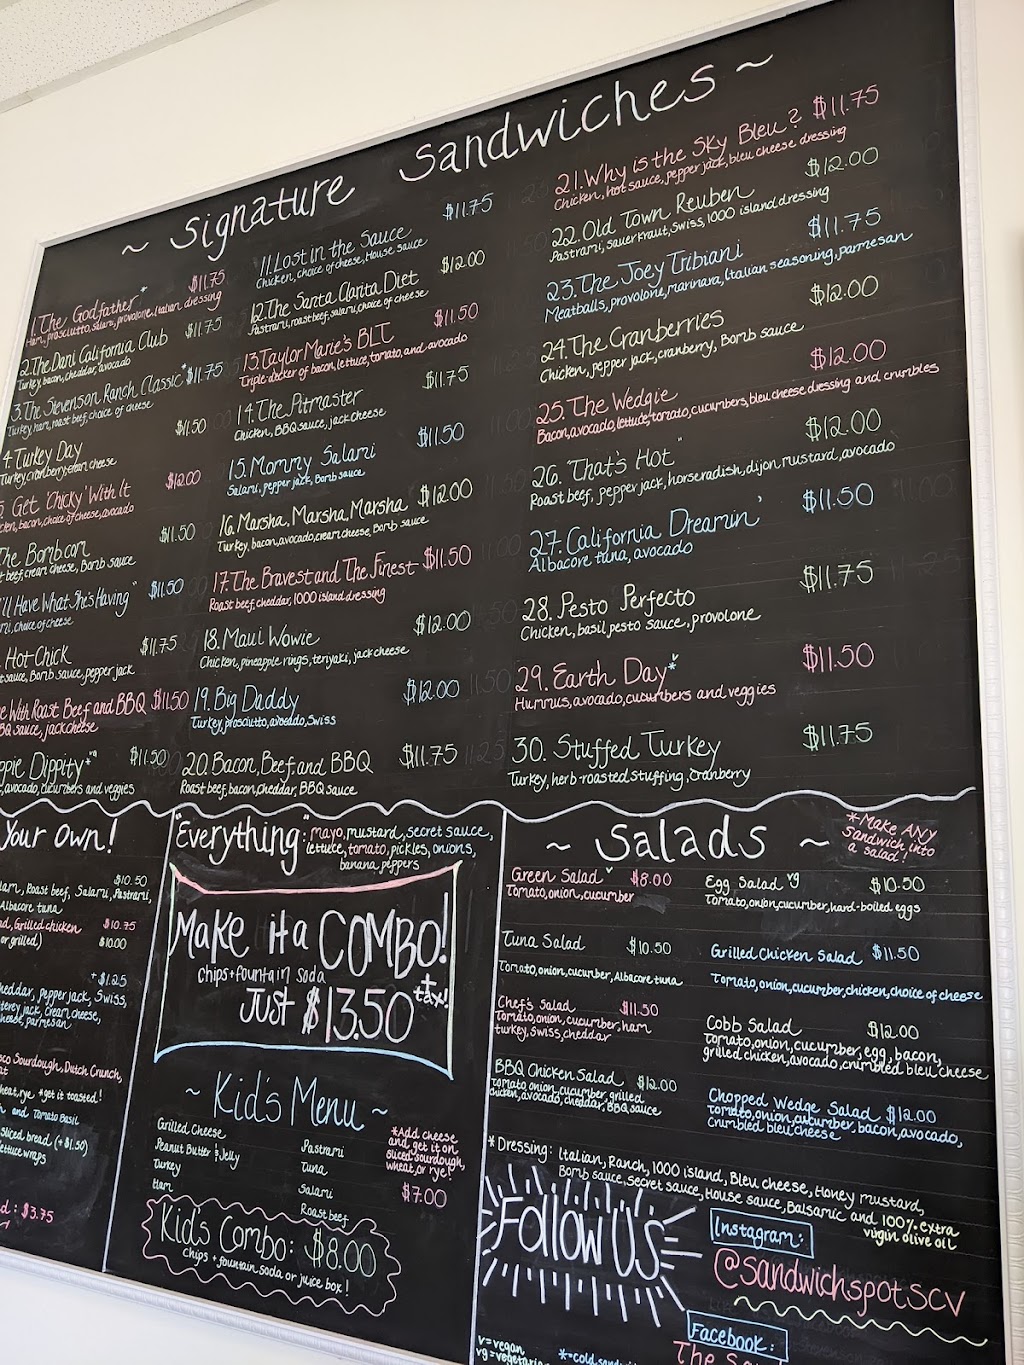 ~ Signature Sandwiches ~
1. The Godfather* $11.75
Ham, prosciutto, salami, provolone, Italian dressing
2. The Dani California Club $11.75
Turkey, bacon, cheddar, avocado
3. The Stevenson Ranch Classic* $11.75
Turkey, ham, roast beef, choice of cheese
4. Turkey Day $11.50
Turkey, cranberry, cream cheese
Get 'Chicky' With It $12.00
bacon, choice of cheese, avocado
The Bombcom $11.50
beef, cream cheese, Bomb sauce
Have What She's Having" $11.50
choice of cheese
Hot Chick $11.75
sauce, Bomb sauce, pepper jack
With Roast Beef and BBQ $11.50
sauce, jack cheese
Dippity*va $11.50
avocado, cucumbers and veggies
11. Lost in the Sauce $11.75
Chicken, choice of cheese, House sauce
12. The Santa Clarita Diet $12.00
Pastrami, roast beef, salami, choice of cheese
13. Taylor Marie's BLT $11.50
Triple-decker of bacon, lettuce, tomato, and avocado
14. The Pitmaster $11.75
Chicken, BBQ sauce, jack cheese
15. Mommy Salami $11.50
Salami, pepper jack, Bomb sauce
16. Marsha, Marsha, Marsha $12.00
Turkey, bacon, avocado, cream cheese, Bomb sauce
17. The Bravest and The Finest $11.50
Roast beef, cheddar, 1000 island dressing
18. Maui Wowie $12.00
Chicken, pineapple rings, teriyaki, jack cheese
19. Big Daddy $12.00
Turkey, prosciutto, avocado, Swiss
20. Bacon, Beef, and BBQ $11.75
Roast beef, bacon, cheddar, BBQ sauce
21. Why is the Sky Bleu? $11.75
Chicken, hot sauce, pepper jack, bleu cheese dressing
22. Old Town Reuben $12.00
Pastrami, sauerkraut, Swiss, 1000 island dressing
23. The Joey Tribiani $11.75
Meatballs, provolone, marinara, Italian seasoning, parmesan
24. The Cranberries $12.00
Chicken, pepper jack, cranberry, Bomb sauce
25. The Wedgie $12.00
Bacon, avocado, lettuce, tomato, cucumbers, bleu cheese dressing and crumbles
26. "That's Hot" $12.00
Roast beef, pepper jack, horseradish, dijon mustard, avocado
27. California Dreamin' $11.50
Albacore tuna, avocado
28. Pesto Perfecto $11.75
Chicken, basil pesto sauce, provolone
29. Earth Day*v $11.50
Hummus, avocado, cucumbers and veggies
30. Stuffed Turkey $11.75
Turkey, herb-roasted stuffing, cranberry
Your Own!
$10.50
Roast Beef, Salami, Pastrami,
Albacore tuna
Grilled chicken $10.75
or grilled) $10.00
+$1.25
cheddar, pepper jack, Swiss,
jack, cream cheese,
parmesan
Sourdough, Dutch Crunch,
rye *get it toasted!
and Tomato Basil
sliced bread (+$1.50)
lettuce wraps
: $3.75
"Everything": mayo, mustard, secret sauce,
lettuce, tomato, pickles, onions,
banana peppers
Make it a COMBO!
chips + fountain soda
Just $13.50 + tax!
~ Kid's Menu ~
Grilled Cheese
Peanut Butter & Jelly
Turkey
Ham
Pastrami
Tuna
Salami
Roast beef
*Add cheese
and get it on
sliced sourdough,
wheat, or rye!
$7.00
Kid's Combo: $8.00
chips + fountain soda or juice box!
~ Salads ~
*Make ANY
sandwich into
a salad!
Green Salad v $8.00
Tomato, onion, cucumber
Egg Salad vg $10.50
Tomato, onion, cucumber, hard-boiled eggs
Tuna Salad $10.50
Tomato, onion, cucumber, Albacore tuna
Grilled Chicken Salad $11.50
Tomato, onion, cucumber, chicken, choice of cheese
Chef's Salad $11.50
Tomato, onion, cucumber, ham
turkey, swiss, cheddar
Cobb Salad $12.00
Tomato, onion, cucumber, egg, bacon,
grilled chicken, avocado, crumbled bleu cheese
BBQ Chicken Salad $12.00
Tomato, onion, cucumber, grilled
chicken, avocado, cheddar, BBQ sauce
Chopped Wedge Salad $12.00
Tomato, onion, cucumber, bacon, avocado,
crumbled bleu cheese
*Dressing: Italian, Ranch, 1000 island, Bleu cheese, Honey mustard,
Bomb sauce, Secret sauce, House sauce, Balsamic and 100% extra
virgin olive oil
Follow Us
Instagram:
@sandwichspotscv
Facebook:
The
v=vegan,
vg=vegetarian
*=cold